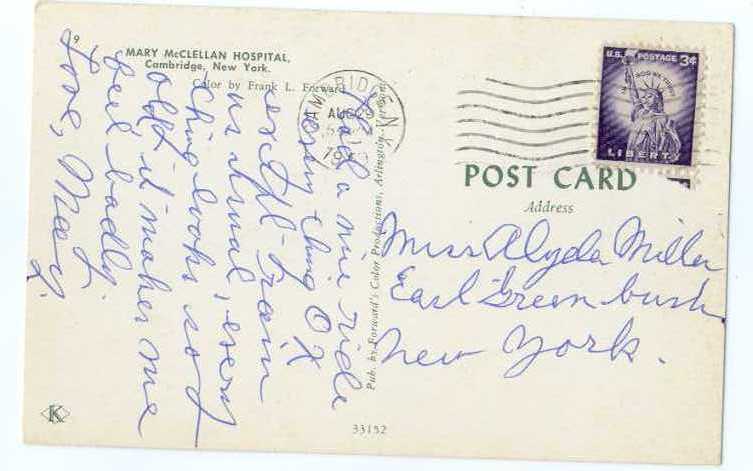 9
MARY McCLELLAN HOSPITAL,
Cambridge, New York.
Color by Frank L. Forward
Had a nice ride
everything OK
except rain
as usual, every
thing looks so
old it makes me
feel badly.
Love, May.
Pub. by Forward's Color Productions, Arlington, Vermont
K
33152
AUG 29
U.S. POSTAGE 3¢
IN GOD WE TRUST
LIBERTY
POST CARD
Address
Miss Alyda Miller
East Greenbush
New York.